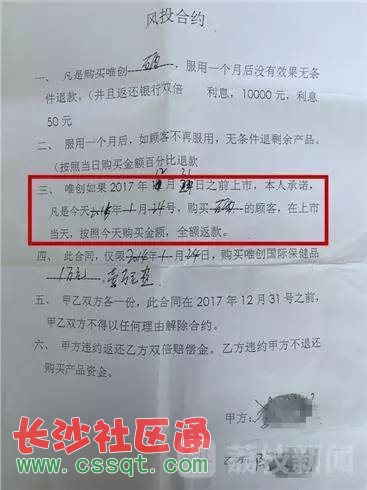 风投合约
一、凡是购买唯创 ，服用一个月后没有效果无条
件退款。（并且返还银行双倍 利息，10000 元，利息
50 元
二、服用一个月后，如顾客不再服用，无条件退剩余产品。
（按照当日购买金额百分比退款
三、唯创如果 2017 年 12 月 31 日之前上市，本人承诺，
凡是今天 2016 年 1 月 24 号，购买 的顾客，在上市
当天，按照今天购买金额，全额返款。
四、此合同，仅限 2016 年 1 月 24 日，购买唯创国际保健品
1万元，壹万元整
五、甲乙双方各一份，此合同在 2017 年 12 月 31 号之前，
甲乙双方不得以任何理由解除合约。
六、甲方违约返还乙方双倍赔偿金。乙方违约甲方不退还
购买产品资金。
甲方：
乙方
荔枝新闻
长沙社区通
www.cssqt.com